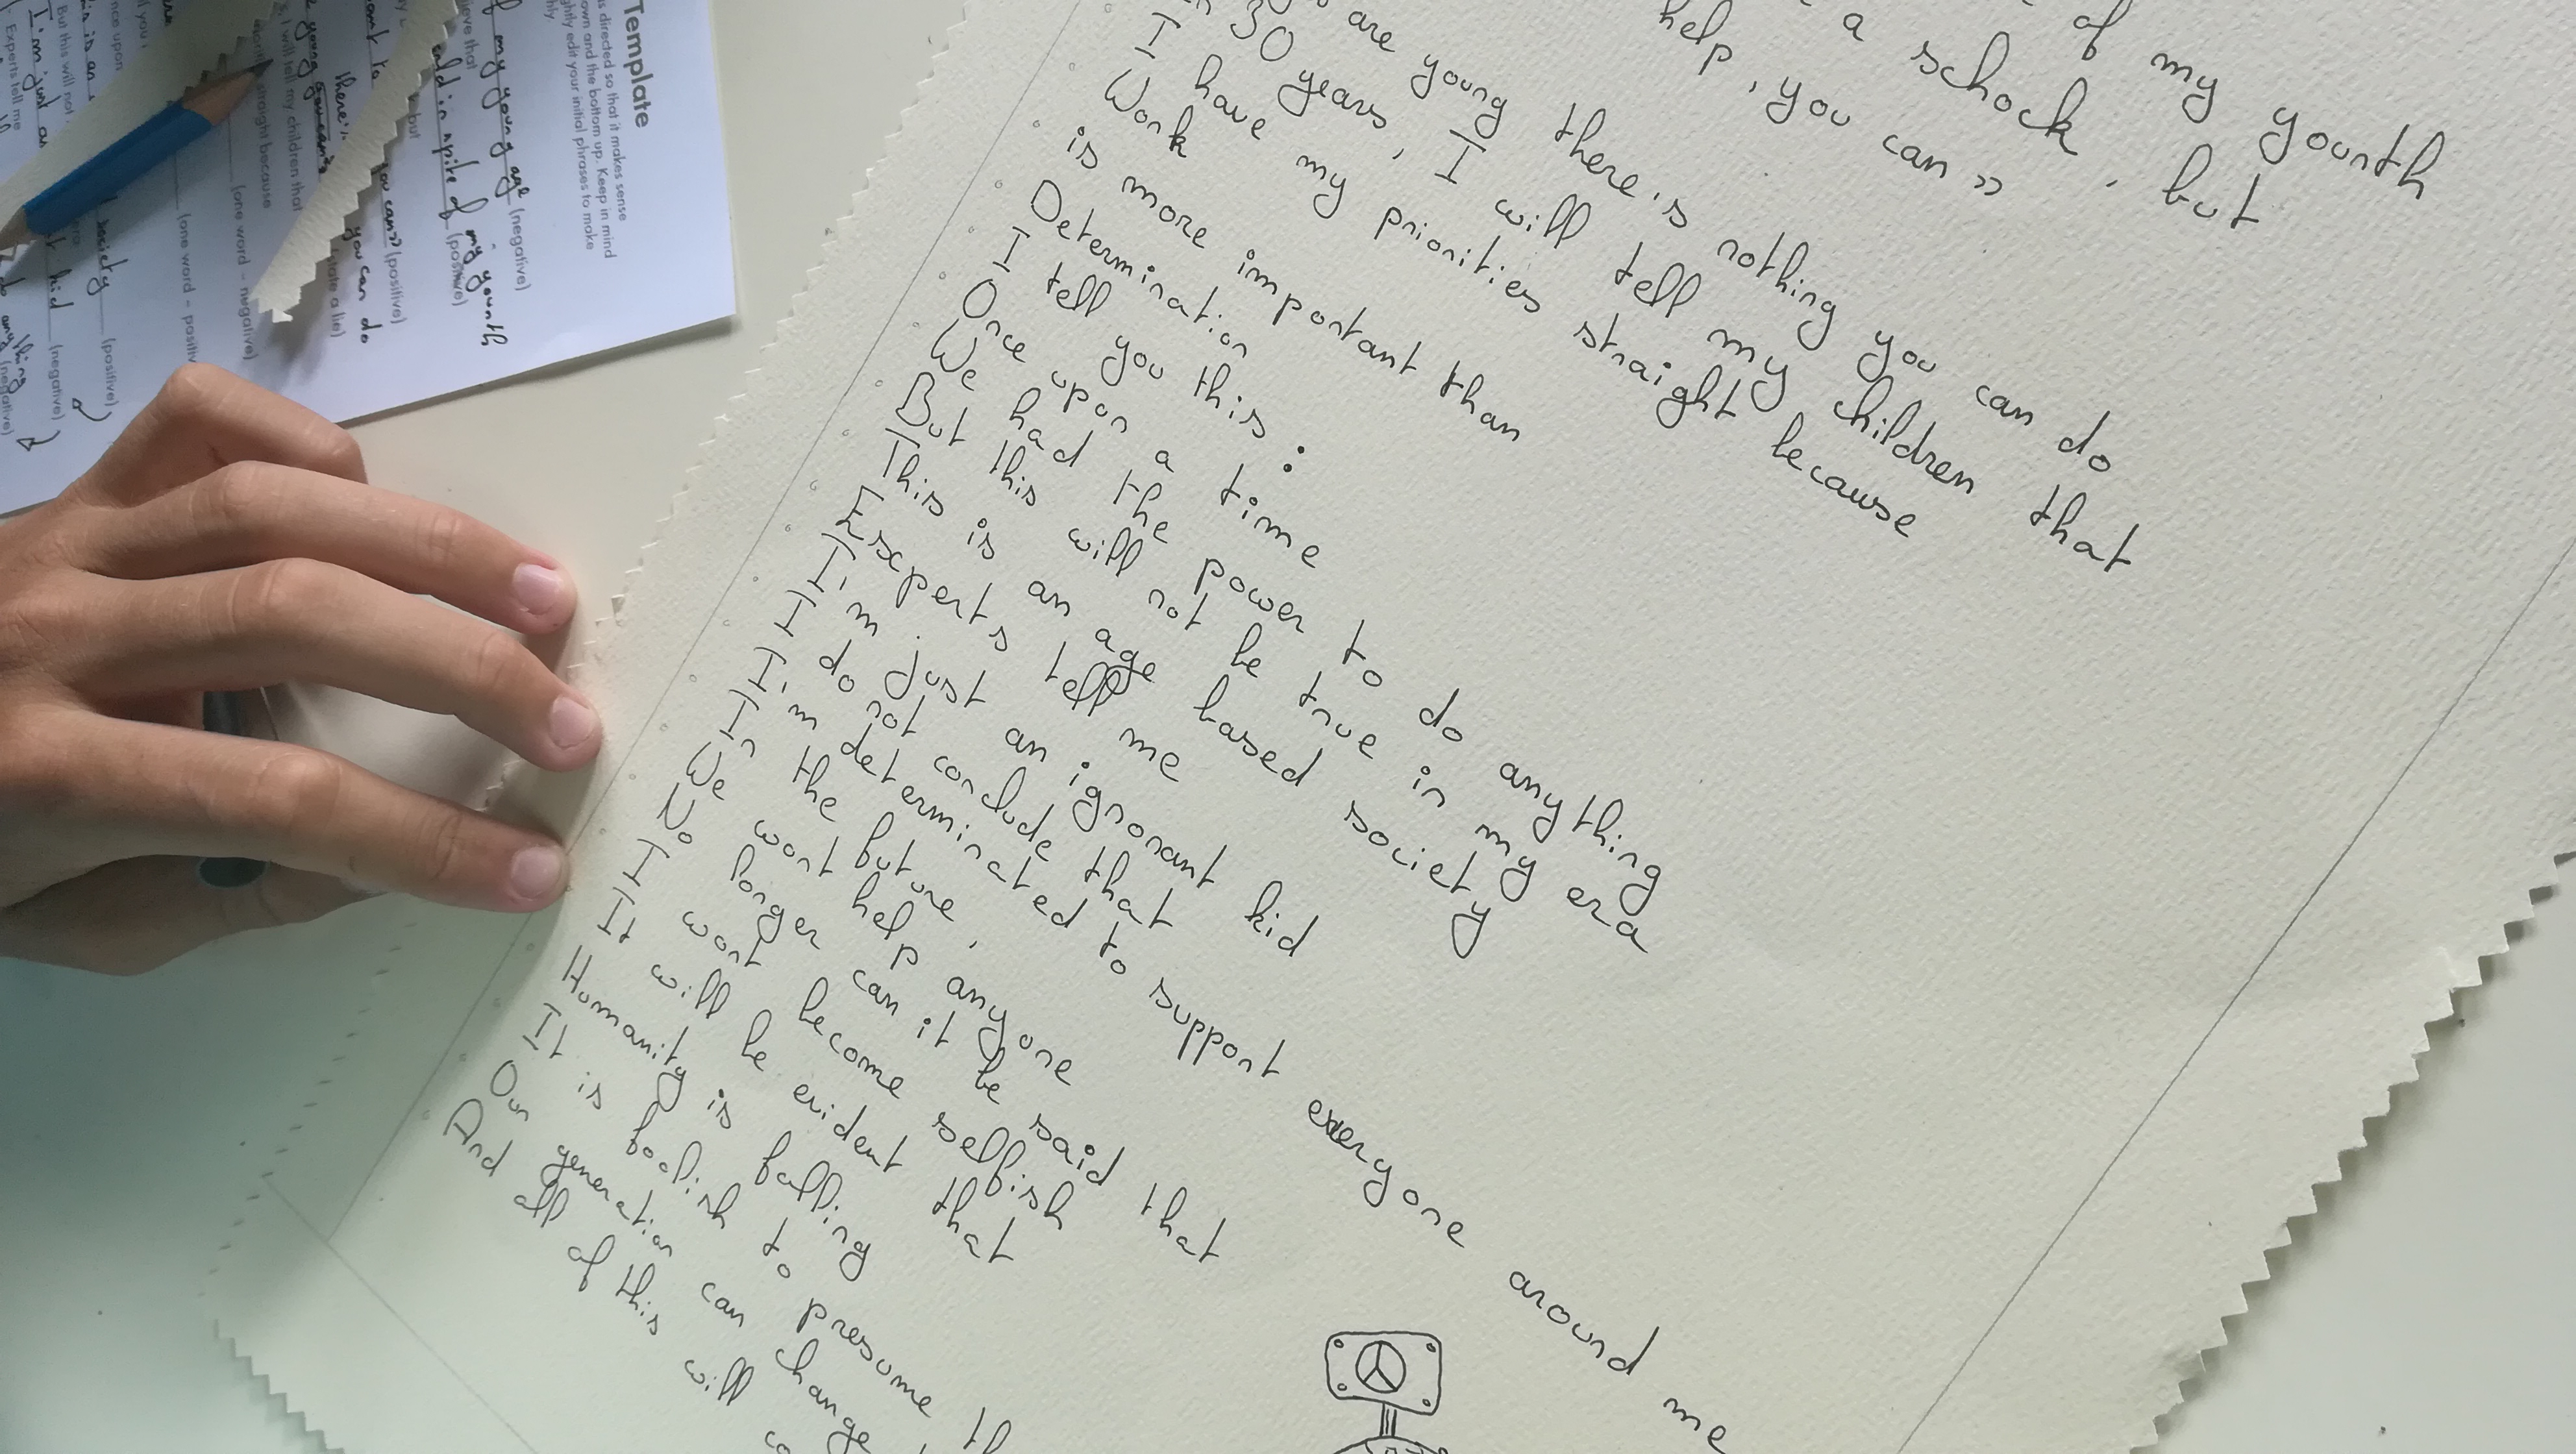 of my yournth
a schock, but
help, you can »
are young there's nothing you can do
30 years, I will tell my children that
I have my priorities straight because
Work
is more important than
Determination
I tell you this :
Once upon a time
We had the power to do anything
But this will not be true in my era
This is an age based society
Experts tell me
I'm just an ignorant kid
I do not conclude that
I'm determinated to support everyone around me
In the future,
We wont help anyone
No longer can it be said that
I wont become selfish
It will be evident that
Humanity is falling
It is foolish to presume th
Our generation can change
And all of this will co
Template
s directed so that it makes sense
own and the bottom up. Keep in mind
ghtly edit your initial phrases to make
my young age (negative)
ieve that
uld in spite of my yournth (positive)
but
you can» (positive)
there's you can do
(state a lie)
I will tell my children that
straight because
(one word - negative)
(one word - positiv
once upon
anything (negative)
But this will not
era
is is an
society (positive)
Experts tell me
I'm just an
kid (negative)